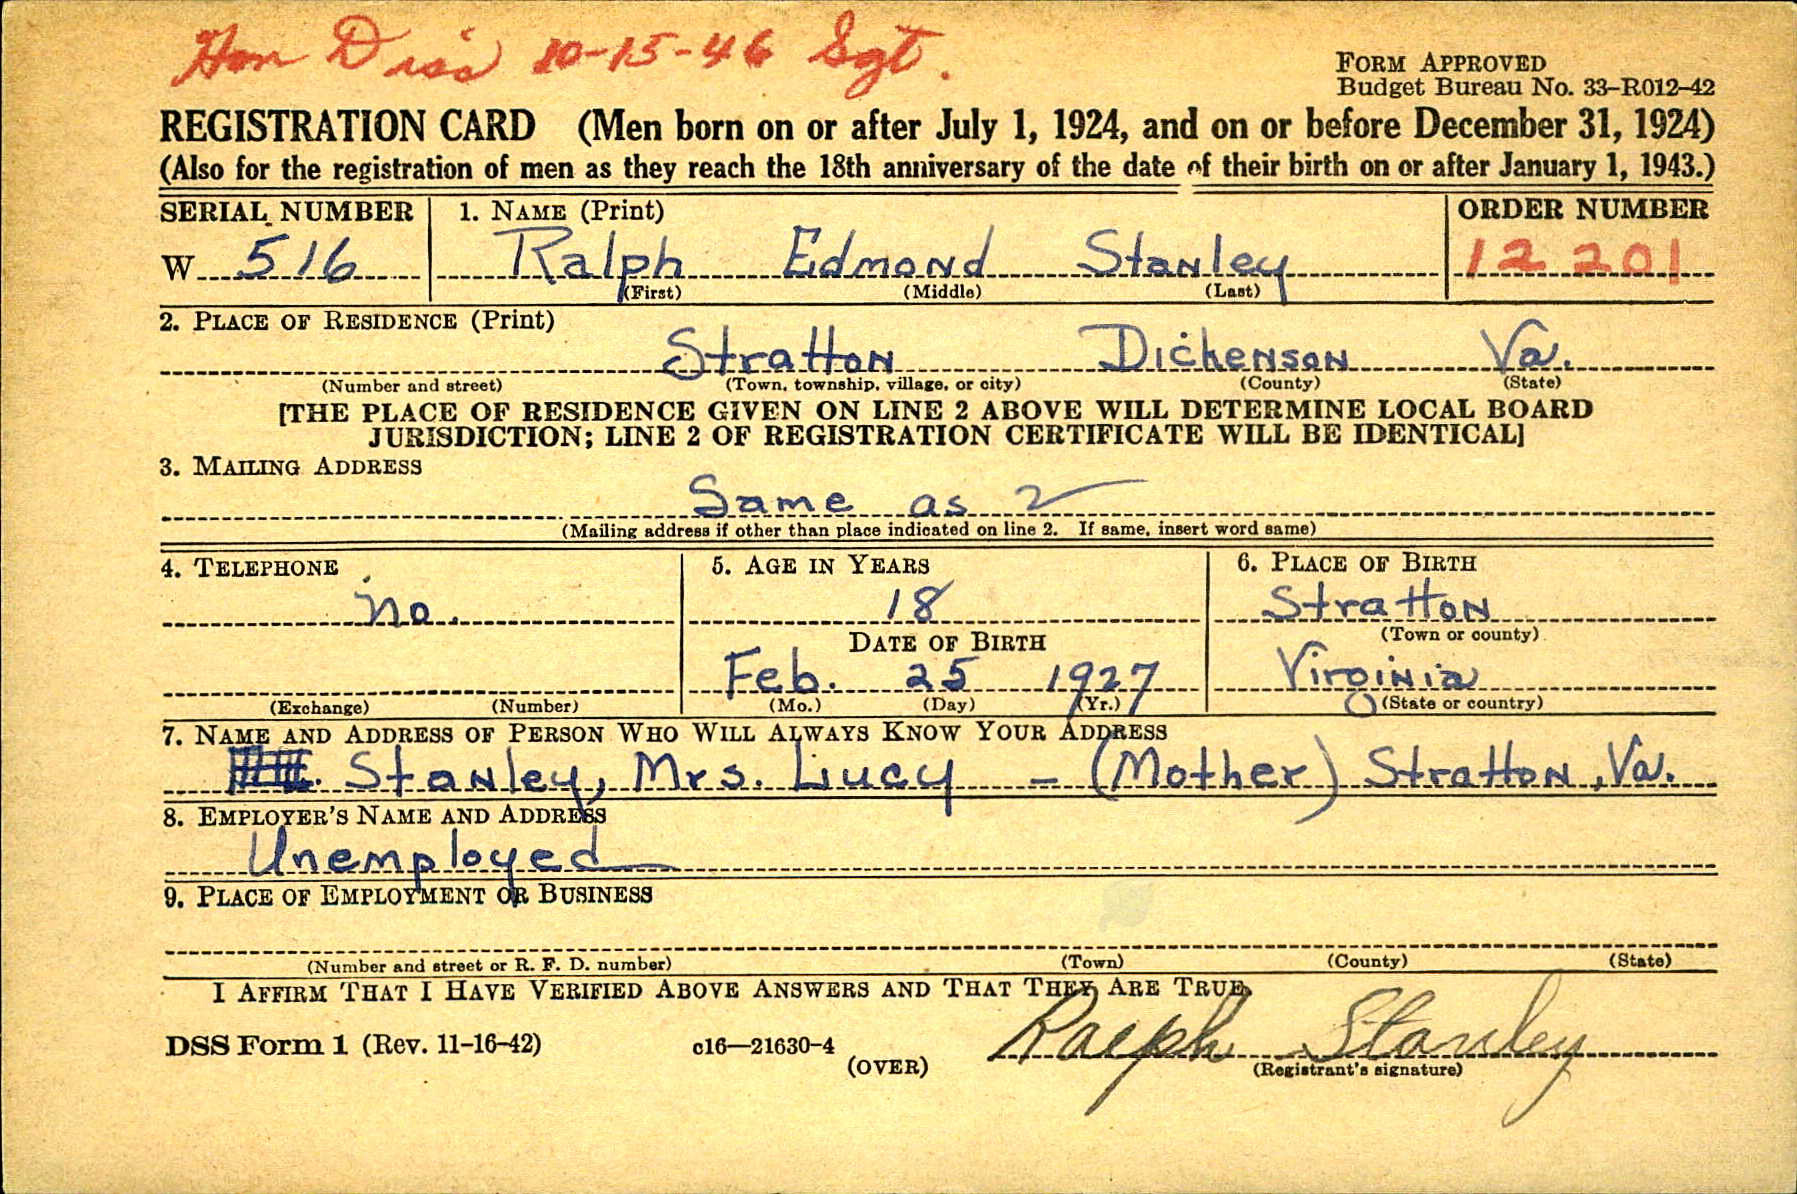 Hon Dis's 10-15-46 Sgt.
FORM APPROVED
Budget Bureau No. 33–R012–42
REGISTRATION CARD (Men born on or after July 1, 1924, and on or before December 31, 1924)
(Also for the registration of men as they reach the 18th anniversary of the date of their birth on or after January 1, 1943.)
SERIAL NUMBER 1. NAME (Print) ORDER NUMBER
W 516 Ralph Edmond Stanley 12 201
(First) (Middle) (Last)
2. PLACE OF RESIDENCE (Print)
Stratton Dickenson Va.
(Number and street) (Town, township, village, or city) (County) (State)
[THE PLACE OF RESIDENCE GIVEN ON LINE 2 ABOVE WILL DETERMINE LOCAL BOARD
JURISDICTION; LINE 2 OF REGISTRATION CERTIFICATE WILL BE IDENTICAL]
3. MAILING ADDRESS
Same as 2
(Mailing address if other than place indicated on line 2. If same, insert word same)
4. TELEPHONE 5. AGE IN YEARS 6. PLACE OF BIRTH
no. 18 Stratton
DATE OF BIRTH (Town or county)
Feb. 25 1927 Virginia
(Exchange) (Number) (Mo.) (Day) (Yr.) (State or country)
7. NAME AND ADDRESS OF PERSON WHO WILL ALWAYS KNOW YOUR ADDRESS
Stanley, Mrs. Lucy – (Mother) Stratton, Va.
8. EMPLOYER'S NAME AND ADDRESS
Unemployed
9. PLACE OF EMPLOYMENT OR BUSINESS
(Number and street or R. F. D. number) (Town) (County) (State)
I AFFIRM THAT I HAVE VERIFIED ABOVE ANSWERS AND THAT THEY ARE TRUE.
DSS Form 1 (Rev. 11–16–42) c16—21630-4 Ralph Stanley
(OVER) (Registrant's signature)